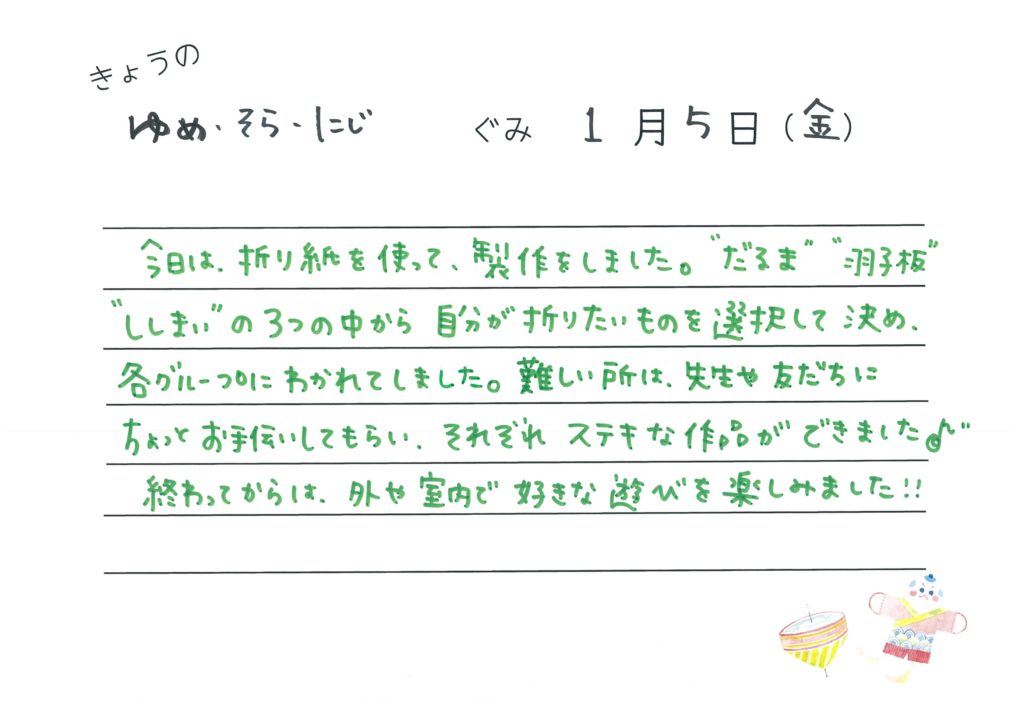 きょうの
ゆめ・そら・にじ ぐみ 1月5日(金)
今日は、折り紙を使って、製作をしました。"だるま" "羽子板"
"ししまい"の3つの中から 自分が折りたいものを選択して決め、
各グループにわかれてしました。難しい所は、先生や友だちに
ちょっとお手伝いしてもらい、それぞれ ステキな作品ができました♪"
終わってからは、外や室内で好きな遊びを楽しみました!!